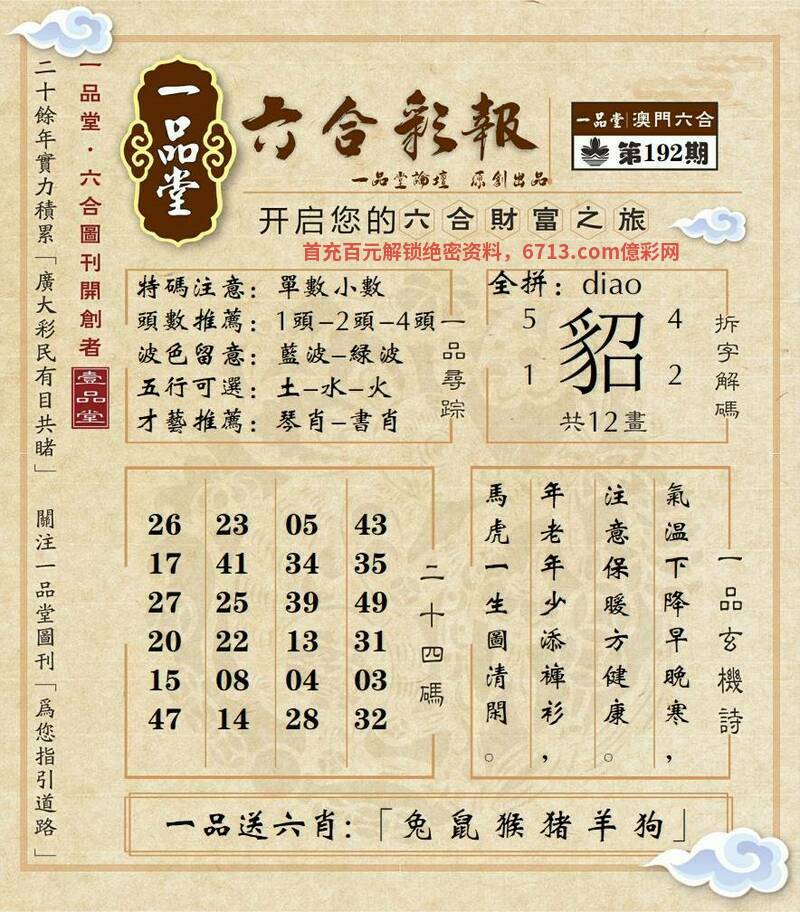 二十餘年實力積累「廣大彩民有目共睹」 關注一品堂圖刊「爲您指引道路」
一品堂·六合圖刊開創者
壹品堂
一品堂
六合彩報
一品堂論壇 原創出品
一品堂|澳門六合
第192期
开启您的六合財富之旅
首充百元解锁绝密资料，6713.com億彩网
特碼注意：單數小數
頭數推薦：1頭–2頭–4頭
波色留意：藍波–緑波
五行可選：土–水–火
才藝推薦：琴肖–書肖
一品尋踪
全拼：diao
5 4
貂
1 2
共12畫
拆字解碼
26 23 05 43
17 41 34 35
27 25 39 49
20 22 13 31
15 08 04 03
47 14 28 32
二十四碼
一品玄機詩
氣温下降早晚寒，
注意保暖方健康。
年老年少添褲衫，
馬虎一生圖清閑。
一品送六肖:「兔鼠猴猪羊狗」